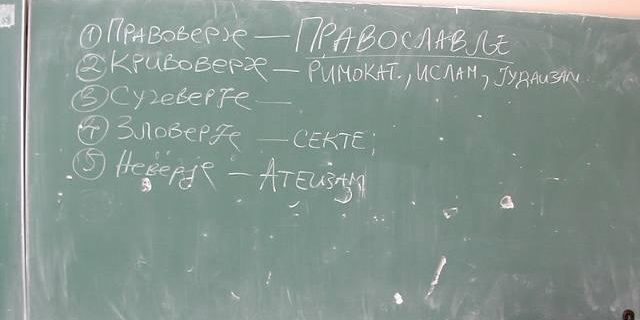 ① ПРАВОВЕРЈЕ — ПРАВОСЛАВЉЕ
② КРИВОВЕРЈЕ — РИМОКАТ., ИСЛАМ, ЈУДАИЗАМ
③ СУЈЕВЕРЈЕ —
④ ЗЛОВЕРЈЕ — СЕКТЕ;
⑤ НЕВЕРЈЕ — АТЕИЗАМ